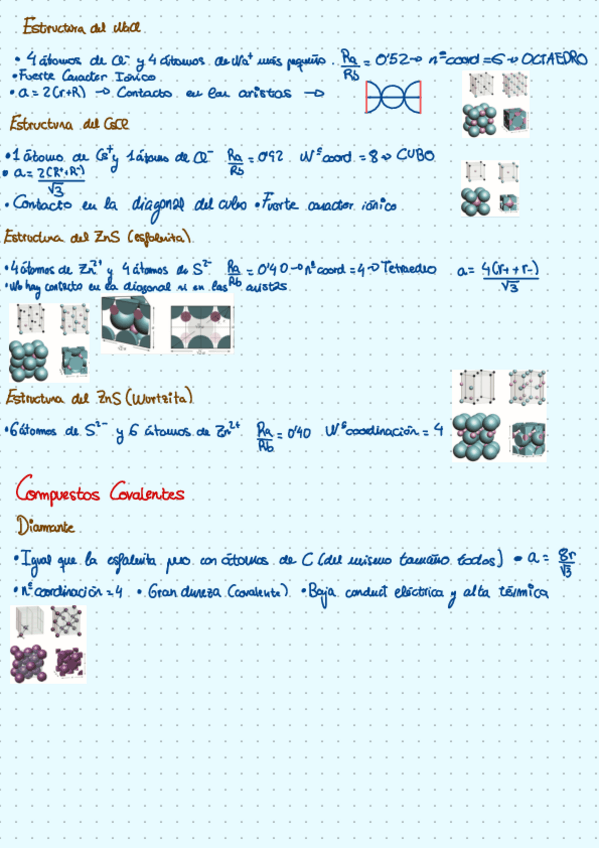 Estructura del NaCl
• 4 átomos de Cl⁻ y 4 átomos de Na⁺ más pequeño. Ra/Rb = 0'52 → nº coord = 6 → OCTAEDRO
• Fuerte Caracter Iónico
• a = 2(r+R) → Contacto en las aristas →
Estructura del CsCl
• 1 átomo de Cs⁺ y 1 átomo de Cl⁻ Ra/Rb = 0'92 Nº coord. = 8 → CUBO
• a = 2(R⁺+R⁻)/√3
• Contacto en la diagonal del cubo • Fuerte caracter iónico
Estructura del ZnS (esfalerita)
• 4 átomos de Zn²⁺ y 4 átomos de S²⁻ Ra/Rb = 0'40 → nº coord = 4 → Tetraedro a = 4(r+ + r-)/√3
• No hay contacto en la diagonal ni en las aristas.
Estructura del ZnS (Wurtzita)
• 6 átomos de S²⁻ y 6 átomos de Zn²⁺ Ra/Rb = 0'40 Nº coordinación = 4
Compuestos Covalentes
Diamante
• Igual que la esfalerita pero con átomos de C (del mismo tamaño todos) • a = 8r/√3
• nº coordinación = 4 • Gran dureza (covalente) • Baja conduct eléctrica y alta térmica